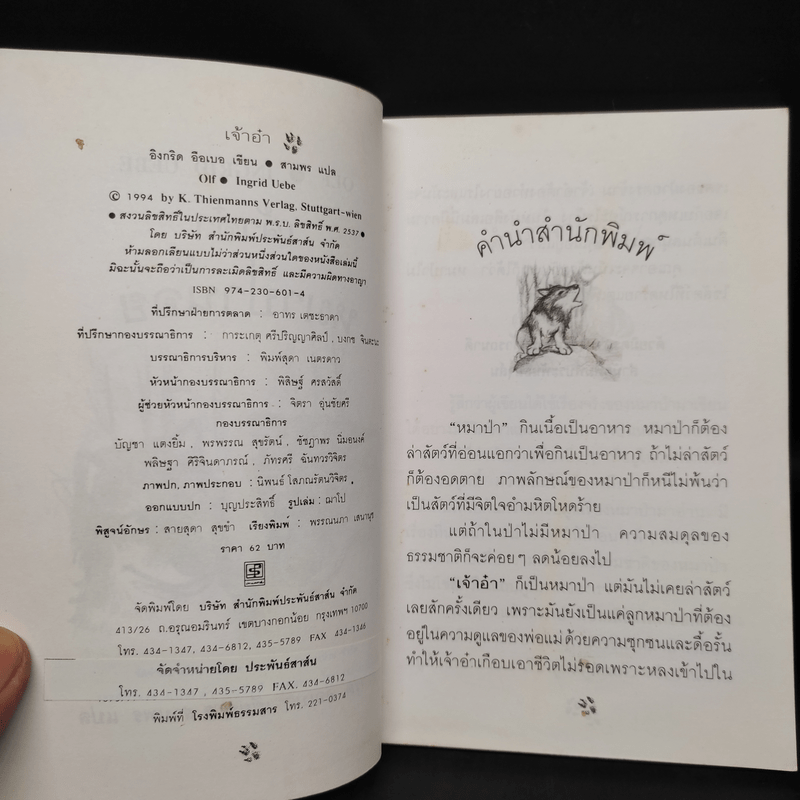 เจ้าอ๋ำ
อิงกริด อือเบอ เขียน ● สามพร แปล
Olf ● Ingrid Uebe
© 1994 by K. Thienmanns Verlag, Stuttgart-wien
● สงวนลิขสิทธิ์ในประเทศไทยตาม พ.ร.บ. ลิขสิทธิ์ พ.ศ. 2537 ●
โดย บริษัท สำนักพิมพ์ประพันธ์สาส์น จำกัด
ห้ามลอกเลียนแบบไม่ว่าส่วนหนึ่งส่วนใดของหนังสือเล่มนี้
มิฉะนั้นจะถือว่าเป็นการละเมิดลิขสิทธิ์ และมีความผิดทางอาญา
ISBN 974-230-601-4
ที่ปรึกษาฝ่ายการตลาด : อาทร เตชะธาดา
ที่ปรึกษากองบรรณาธิการ : การะเกตุ ศรีปริญญาศิลป์, บงกช จินตะนะ
บรรณาธิการบริหาร : พิมพ์สุดา เนตรดาว
หัวหน้ากองบรรณาธิการ : พิสิษฐ์ ศรสวัสดิ์
ผู้ช่วยหัวหน้ากองบรรณาธิการ : จิตรา อุ่นชัยศรี
กองบรรณาธิการ
บัญชา แตงยิ้ม, พรพรรณ สุขรัตน์, ชัชฎาพร นิ่มอนงค์
พลิษฐา ศิริจินดาภรณ์, ภัทรศรี ฉันทวรวิจิตร
ภาพปก, ภาพประกอบ : นิพนธ์ โสภณรัตนวิจิตร
ออกแบบปก : บุญประสิทธิ์ รูปเล่ม : ฌาไป
พิสูจน์อักษร : สายสุดา สุขขำ เรียงพิมพ์ : พรรณนภา เสนานุช
ราคา 62 บาท
จัดพิมพ์โดย บริษัท สำนักพิมพ์ประพันธ์สาส์น จำกัด
413/26 ถ.อรุณอมรินทร์ เขตบางกอกน้อย กรุงเทพฯ 10700
โทร. 434-1347, 434-6812, 435-5789 FAX 434-1346
จัดจำหน่ายโดย ประพันธ์สาส์น
โทร. 434-1347, 435-5789 FAX. 434-6812
พิมพ์ที่ โรงพิมพ์ธรรมสาร โทร. 221-0374
คำนำสำนักพิมพ์
"หมาป่า" กินเนื้อเป็นอาหาร หมาป่าก็ต้อง
ล่าสัตว์ที่อ่อนแอกว่าเพื่อกินเป็นอาหาร ถ้าไม่ล่าสัตว์
ก็ต้องอดตาย ภาพลักษณ์ของหมาป่าก็หนีไม่พ้นว่า
เป็นสัตว์ที่มีจิตใจอำมหิตโหดร้าย
แต่ถ้าในป่าไม่มีหมาป่า ความสมดุลของ
ธรรมชาติก็จะค่อยๆ ลดน้อยลงไป
"เจ้าอ๋ำ" ก็เป็นหมาป่า แต่มันไม่เคยล่าสัตว์
เลยสักครั้งเดียว เพราะมันยังเป็นแค่ลูกหมาป่าที่ต้อง
อยู่ในความดูแลของพ่อแม่ด้วยความซุกซนและดื้อรั้น
ทำให้เจ้าอ๋ำเกือบเอาชีวิตไม่รอดเพราะหลงเข้าไปใน